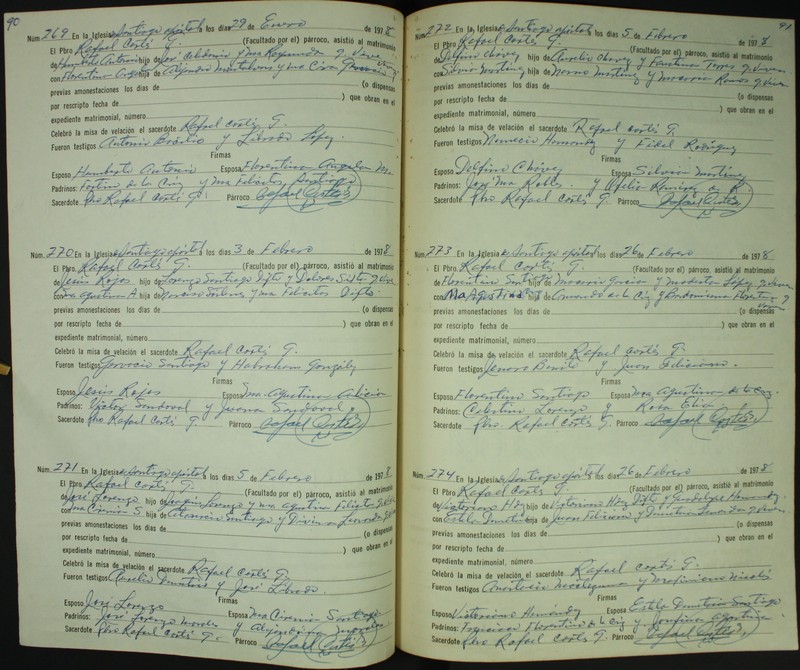 90
Núm. 269 En la Iglesia de Santiago apóstol los días 29 de Enero de 1978
El Pbro. Rafael Cortés G. (Facultado por el) párroco, asistió al matrimonio
de Humberto Antonio hijo de
con Florentina hija de
previas amonestaciones los días de (o dispensas
por rescripto fecha de ) que obran en el
expediente matrimonial, número
Celebró la misa de velación el sacerdote Rafael Cortés G.
Fueron testigos Antonio Basilio y Librado López.
Firmas
Esposo Humberto Antonio Esposa Florentina
Padrinos: Fortino de la Cruz y Ma Felicitas Santiago
Sacerdote Pbro Rafael Cortés G. Párroco Rafael Cortés
Núm. 270 En la Iglesia de Santiago apóstol los días 3 de Febrero de 1978
El Pbro. Rafael Cortés G. (Facultado por el) párroco, asistió al matrimonio
de Jesús Rojas hijo de Lorenzo Santiago Difto y Dolores
con Ma Agustina A hija de y Ma Felicitas Difto.
previas amonestaciones los días de (o dispensas
por rescripto fecha de ) que obran en el
expediente matrimonial, número
Celebró la misa de velación el sacerdote Rafael Cortés G.
Fueron testigos Gervacio Santiago y Habraham González
Firmas
Esposo Jesús Rojas Esposa Ma Agustina
Padrinos: Víctor Sandoval y Juana Sandoval.
Sacerdote Pbro Rafael Cortés G Párroco Rafael Cortés
Núm. 271 En la Iglesia de Santiago apóstol los días 5 de Febrero de 1978
El Pbro. Rafael Cortés G. (Facultado por el) párroco, asistió al matrimonio
de José Lorenzo hijo de Lorenzo y Ma Agustina Felicitas
con Ma Cirenia S. hija de Santiago y
previas amonestaciones los días de (o dispensas
por rescripto fecha de ) que obran en el
expediente matrimonial, número
Celebró la misa de velación el sacerdote Rafael Cortés G.
Fueron testigos Aurelio Demetrio y José Librado.
Firmas
Esposo José Lorenzo Esposa Ma Cirenia Santiago
Padrinos: José Lorenzo y Alejandrina
Sacerdote Pbro Rafael Cortés G. Párroco Rafael Cortés
91
Núm. 272 En la Iglesia de Santiago apóstol los días 5 de Febrero de 1978
El Pbro. Rafael Cortés G. (Facultado por el) párroco, asistió al matrimonio
de Delfino Chávez hijo de Aurelio Chávez y Faustina Torres q viven
con Silvia Martínez hija de Martínez y Macaria Ramos q viven
previas amonestaciones los días de (o dispensas
por rescripto fecha de ) que obran en el
expediente matrimonial, número
Celebró la misa de velación el sacerdote Rafael Cortés G.
Fueron testigos Nemecio Hernández y Fidel Rodríguez
Firmas
Esposo Delfino Chávez Esposa Silvia Martínez
Padrinos: José Ma Robles y Ofelia Ramírez de R
Sacerdote Pbro Rafael Cortés G. Párroco Rafael Cortés
Núm. 273 En la Iglesia de Santiago apóstol los días 26 de Febrero de 1978
El Pbro. Rafael Cortés G. (Facultado por el) párroco, asistió al matrimonio
de Florentino San hijo de Macario García y Modesta López q viven
con Ma Agustina hija de Armando de la Cruz y Florentina q
viven
previas amonestaciones los días de (o dispensas
por rescripto fecha de ) que obran en el
expediente matrimonial, número
Celebró la misa de velación el sacerdote Rafael Cortés G.
Fueron testigos Genaro Benito y Juan Feliciano.
Firmas
Esposo Florentino Santiago Esposa Ma Agustina de la Cruz.
Padrinos: Celestino Lorenzo y Rosa Elia
Sacerdote Pbro. Rafael Cortés G. Párroco Rafael Cortés
Núm. 274 En la Iglesia de Santiago apóstol los días 26 de Febrero de 1978
El Pbro. Rafael Cortés G (Facultado por el) párroco, asistió al matrimonio
de Victoriano Hdz hijo de Victoriano Hdz Difto y Guadalupe Hernández
con Estela Demetrio hija de Juan Feliciano y
previas amonestaciones los días de (o dispensas
por rescripto fecha de ) que obran en el
expediente matrimonial, número
Celebró la misa de velación el sacerdote Rafael Cortés G.
Fueron testigos Anastacio y
Firmas
Esposo Victoriano Hernández Esposa Estela Demetrio Santiago
Padrinos: Francisco Florentino de la Cruz y Josefina Agustina
Sacerdote Pbro Rafael Cortés G. Párroco Rafael Cortés